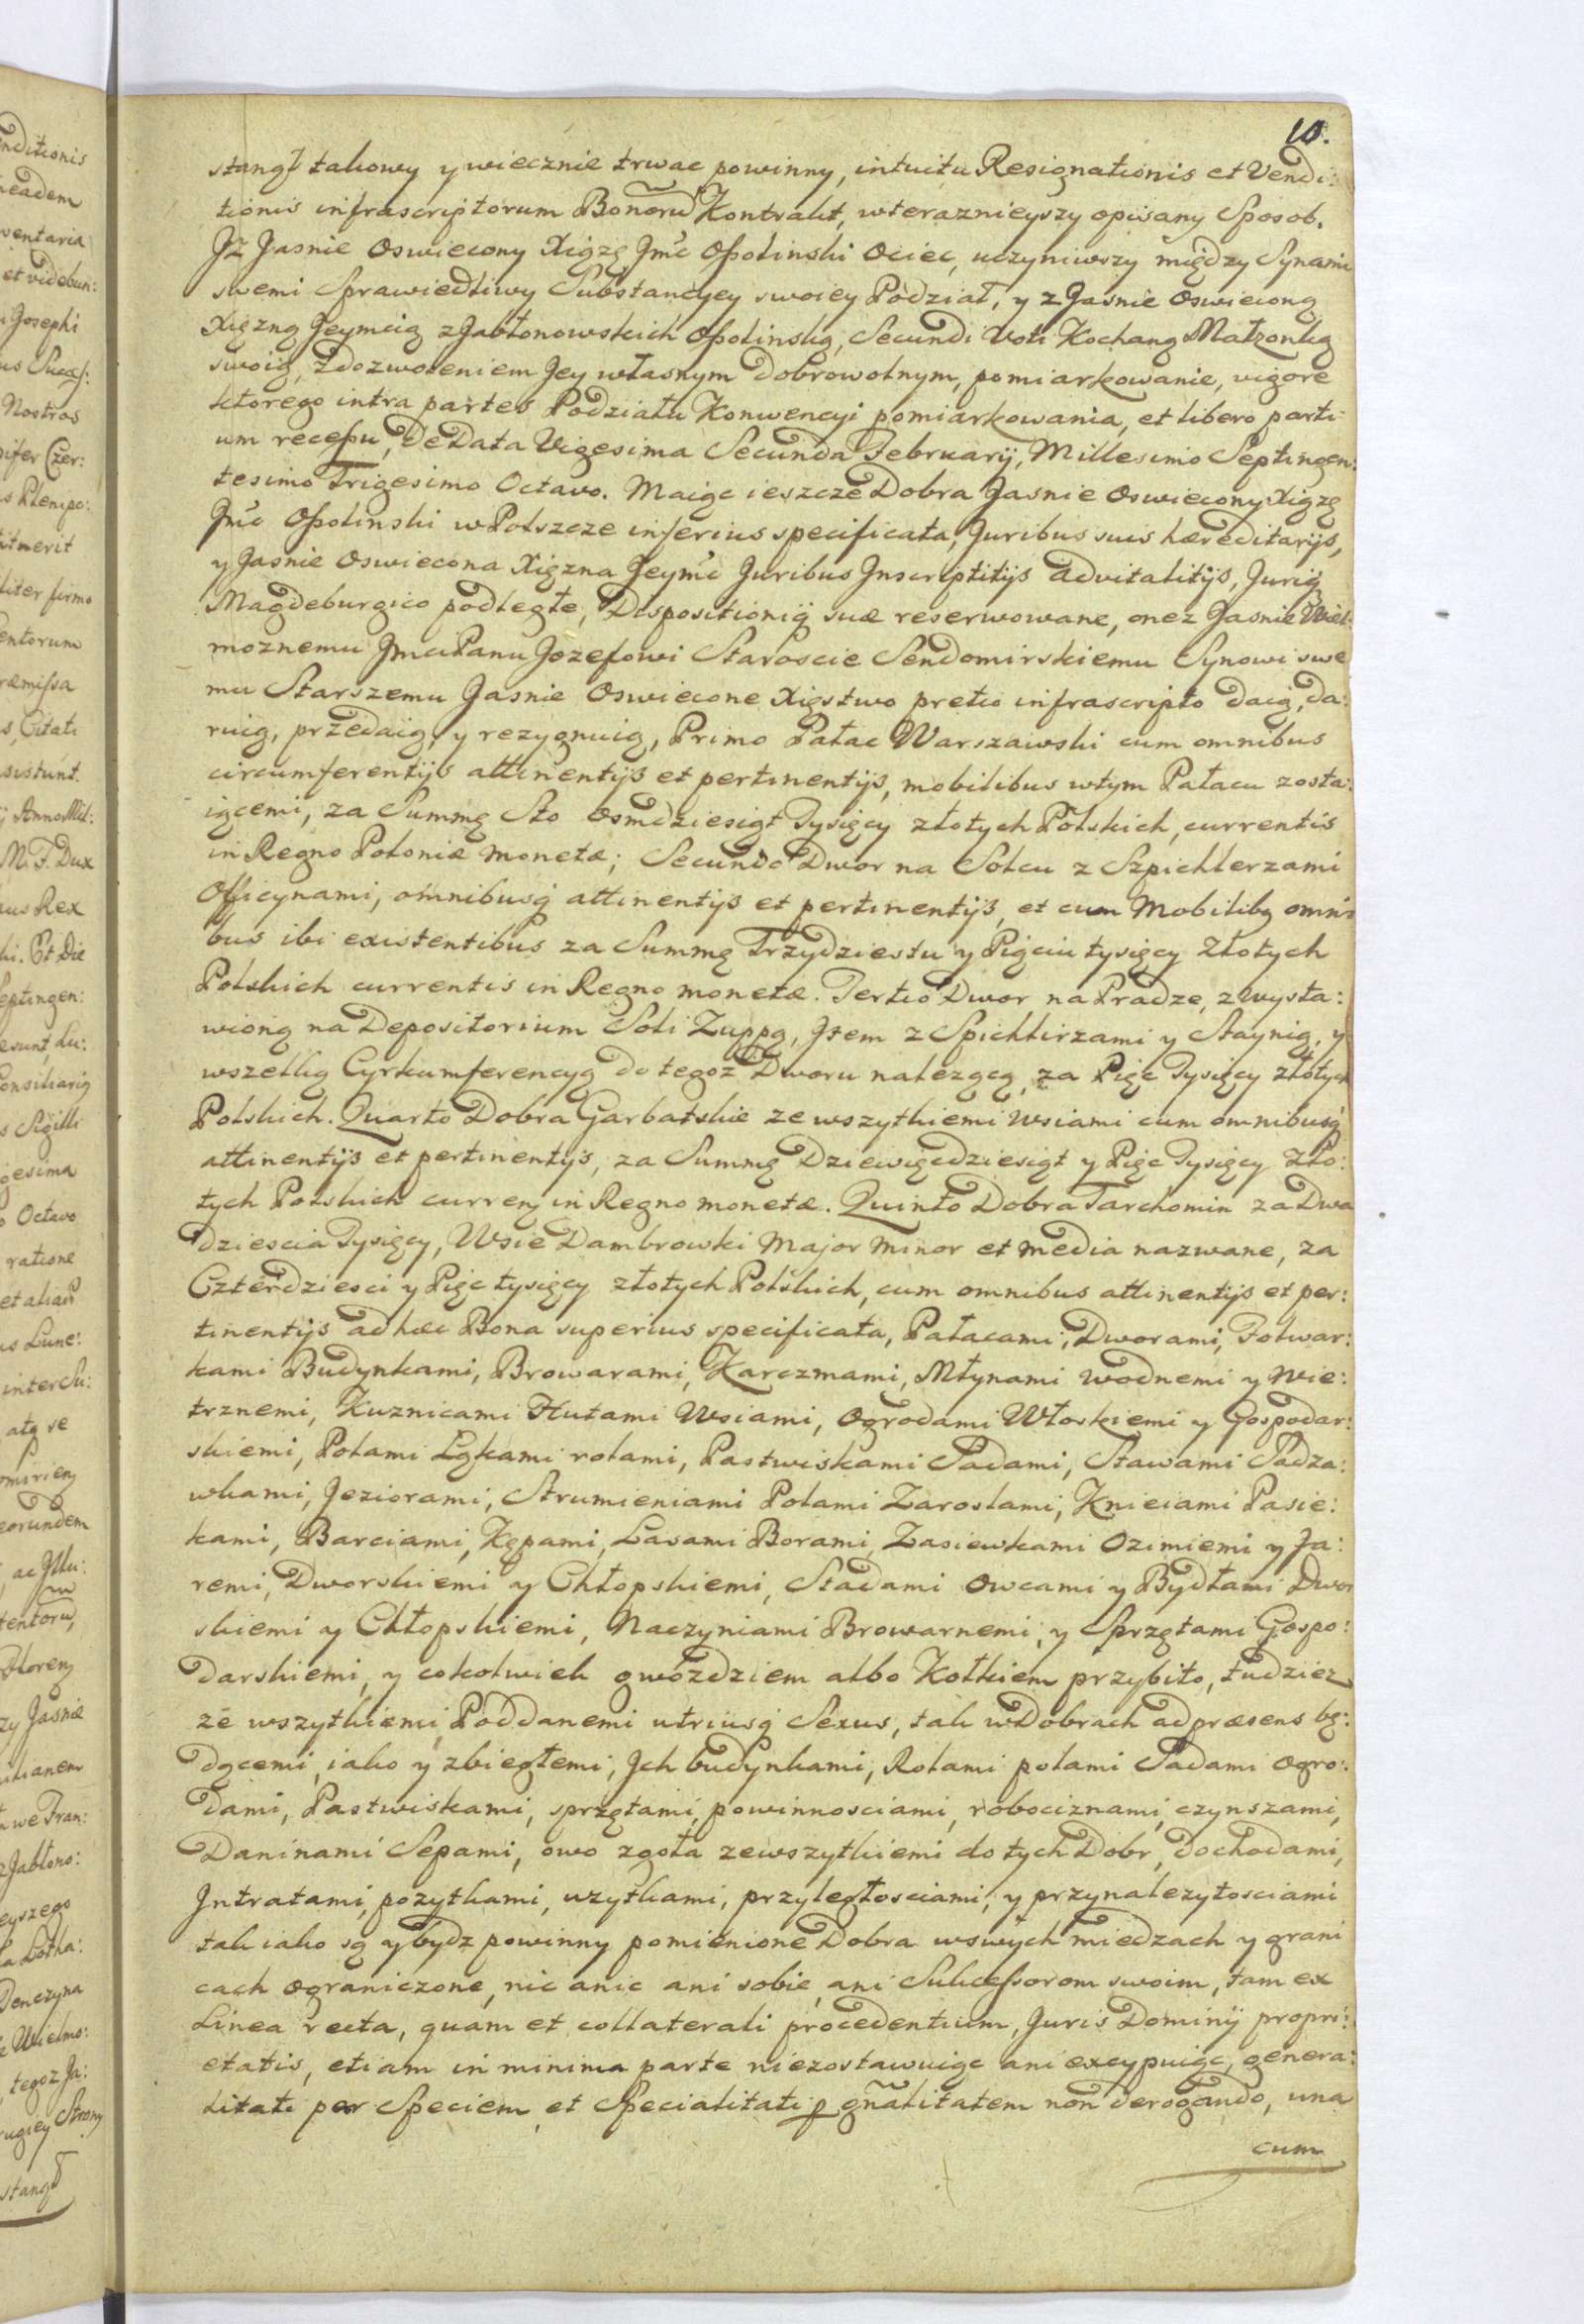 nditionis
eadem
ventaria
et videbun:
Josephi
us Success:
Nostros
difer Czer:
s Plenipo:
tmerit
liter firmo
entorum
ræmissa
s, Citati
sistunt.
ij Anno Mil:
M. F. Dux
us Rex
ki. Et Die
eptingen:
esunt, Lu:
Consiliarij
s Sigilli
gesima
o Octavo
ratione
et aliarũ
us Lune:
inter Su:
atq se
eorundem
ac Illu:
tentorũ,
zy Jasnie
we Fran:
z Jabłono:
eyszego
Denczyna
e Wielmo:
tegoz Ja:
rugiey Strony
stanął
10.
stanął takowy y wiecznie trwac powinny, intuitu Resignationis et Vendi:
tionis infrascriptorum Bonorũ Kontrakt, w teraznieyszy opisany Sposob.
Jż Jasnie Oswiecony Xiążę Jmć Ossolinski Ociec, uczyniwszy między Synami
swemi Sprawiedliwy Substancyey swoiey Podział, y z Jasnie Oswieconą
Xięzną Jeymcią z Jabłonowskich Ossolinską, Secundi Voti Kochaną Małzonką
swoią, z dozwoleniem Jey własnym dobrowolnym, pomiarkowanie, vigore
ktorego intra partes Podziału Konwencyi pomiarkowania, et libero parti:
um recessu, De Data Vigesima Secunda Februarij, Millesimo Septingen:
tesimo Trigesimo Octavo. Maiąc ieszcze Dobra Jasnie Oswiecony Xiążę
Jmć Ossolinski w Polszcze inferius specificata, Juribus suis hæreditarijs,
y Jasnie Oswiecona Xięzna Jeymć Juribus Inscriptitijs advitalitijs, Juriq́
Magdeburgico podległe, Dispositioniq́ suæ reserwowane, onez Jasnie Wiel:
moznemu Jmci Panu Jozefowi Staroscie Sendomirskiemu Synowi swe
mu Starszemu Jasnie Oswiecone Xięstwo pretio infrascripto daią, da:
ruią, przedaią, y rezygnuią, Primo Pałac Warszawski cum omnibus
circumferentijs attinentijs et pertinentijs, mobilibus w tym Pałacu zosta:
iącemi, za Summę Sto osmdziesiąt Tysięcy złotych Polskich, currentis
in Regno Poloniæ monetæ; Secundo Dwor na Solcu z Szpichlerzami
Officynami, omnibusq́ attinentijs et pertinentijs, et cum Mobilibꝫ omni
bus ibi existentibus za Summę Trzydziestu y Pięciu tysięcy Złotych
Polskich currentis in Regno monetæ. Tertio Dwor na Pradze, z wysta:
wioną na Depositorium Soli Zuppą, Jtem z Spichlirzami y Staynią, y
wszelką Cyrkumferencyą do tegoz Dworu nalezącą, za Pięc Tysięcy złotych
Polskich. Quarto Dobra Garbatskie ze wszytkiemi Wsiami cum omnibusq́
attinentijs et pertinentijs, za Summę Dziewięcdziesiąt y Pięc Tysięcy Zło:
tych Polskich curreñ in Regno monetæ. Quinto Dobra Tarchomin za Dwa
dziescia Tysięcy, Wsie Dambrowski Major Minor et Media nazwane, za
Czterdziesci y Pięc tysięcy złotych Polskich, cum omnibus attinentijs et per:
tinentijs ad hæc Bona superius specificata, Pałacami, Dworami, Folwar:
kami Budynkami, Browarami, Karczmami, Młynami wodnemi y Wie:
trznemi, Kuznicami Hutami Wsiami, Ogrodami Włoskiemi y Gospodar:
skiemi, Polami Łąkami rolami, Pastwiskami Sadami, Stawami Sadza:
wkami, Jeziorami, Strumieniami Polami Zaroslami, Knieiami Pasie:
kami, Barciami, Kępami, Lasami Borami, Zasiewkami Ozimiemi y Ja:
remi, Dworskiemi y Chłopskiemi, Stadami owcami y Bydłami Dwor
skiemi y Chłopskiemi, Naczyniami Browarnemi, y Sprzętami Gospo:
darskiemi, y cokolwiek gwozdziem albo Kołkiem przybito, tudziez
ze wszytkiemi Poddanemi utriusq́ Sexus, tak w Dobrach ad præsens bę:
dącemi, iako y zbiegłemi, Jch budynkami, Rolami polami Sadami ogro:
dami, Pastwiskami, sprzętami, powinnosciami, robociznami, czynszami,
Daninami Sepami, owo zgoła ze wszytkiemi do tych Dobr, dochodami,
Jntratami, pozytkami, uzytkami, przyległosciami, y przynalezytosciami
tak iako są y bydz powinny pomienione Dobra w swych miedzach y grani
cach ograniczone, nic a nic ani sobie, ani Sukcessorom swoim, tam ex
Linea recta, quam et collaterali procedentium, Juris Dominij propri:
etatis, etiam in minima parte niezostawuiąc ani excypuiąc, genera:
litati per Speciem, et Specialitati p gñalitatem non derogando, una
cum